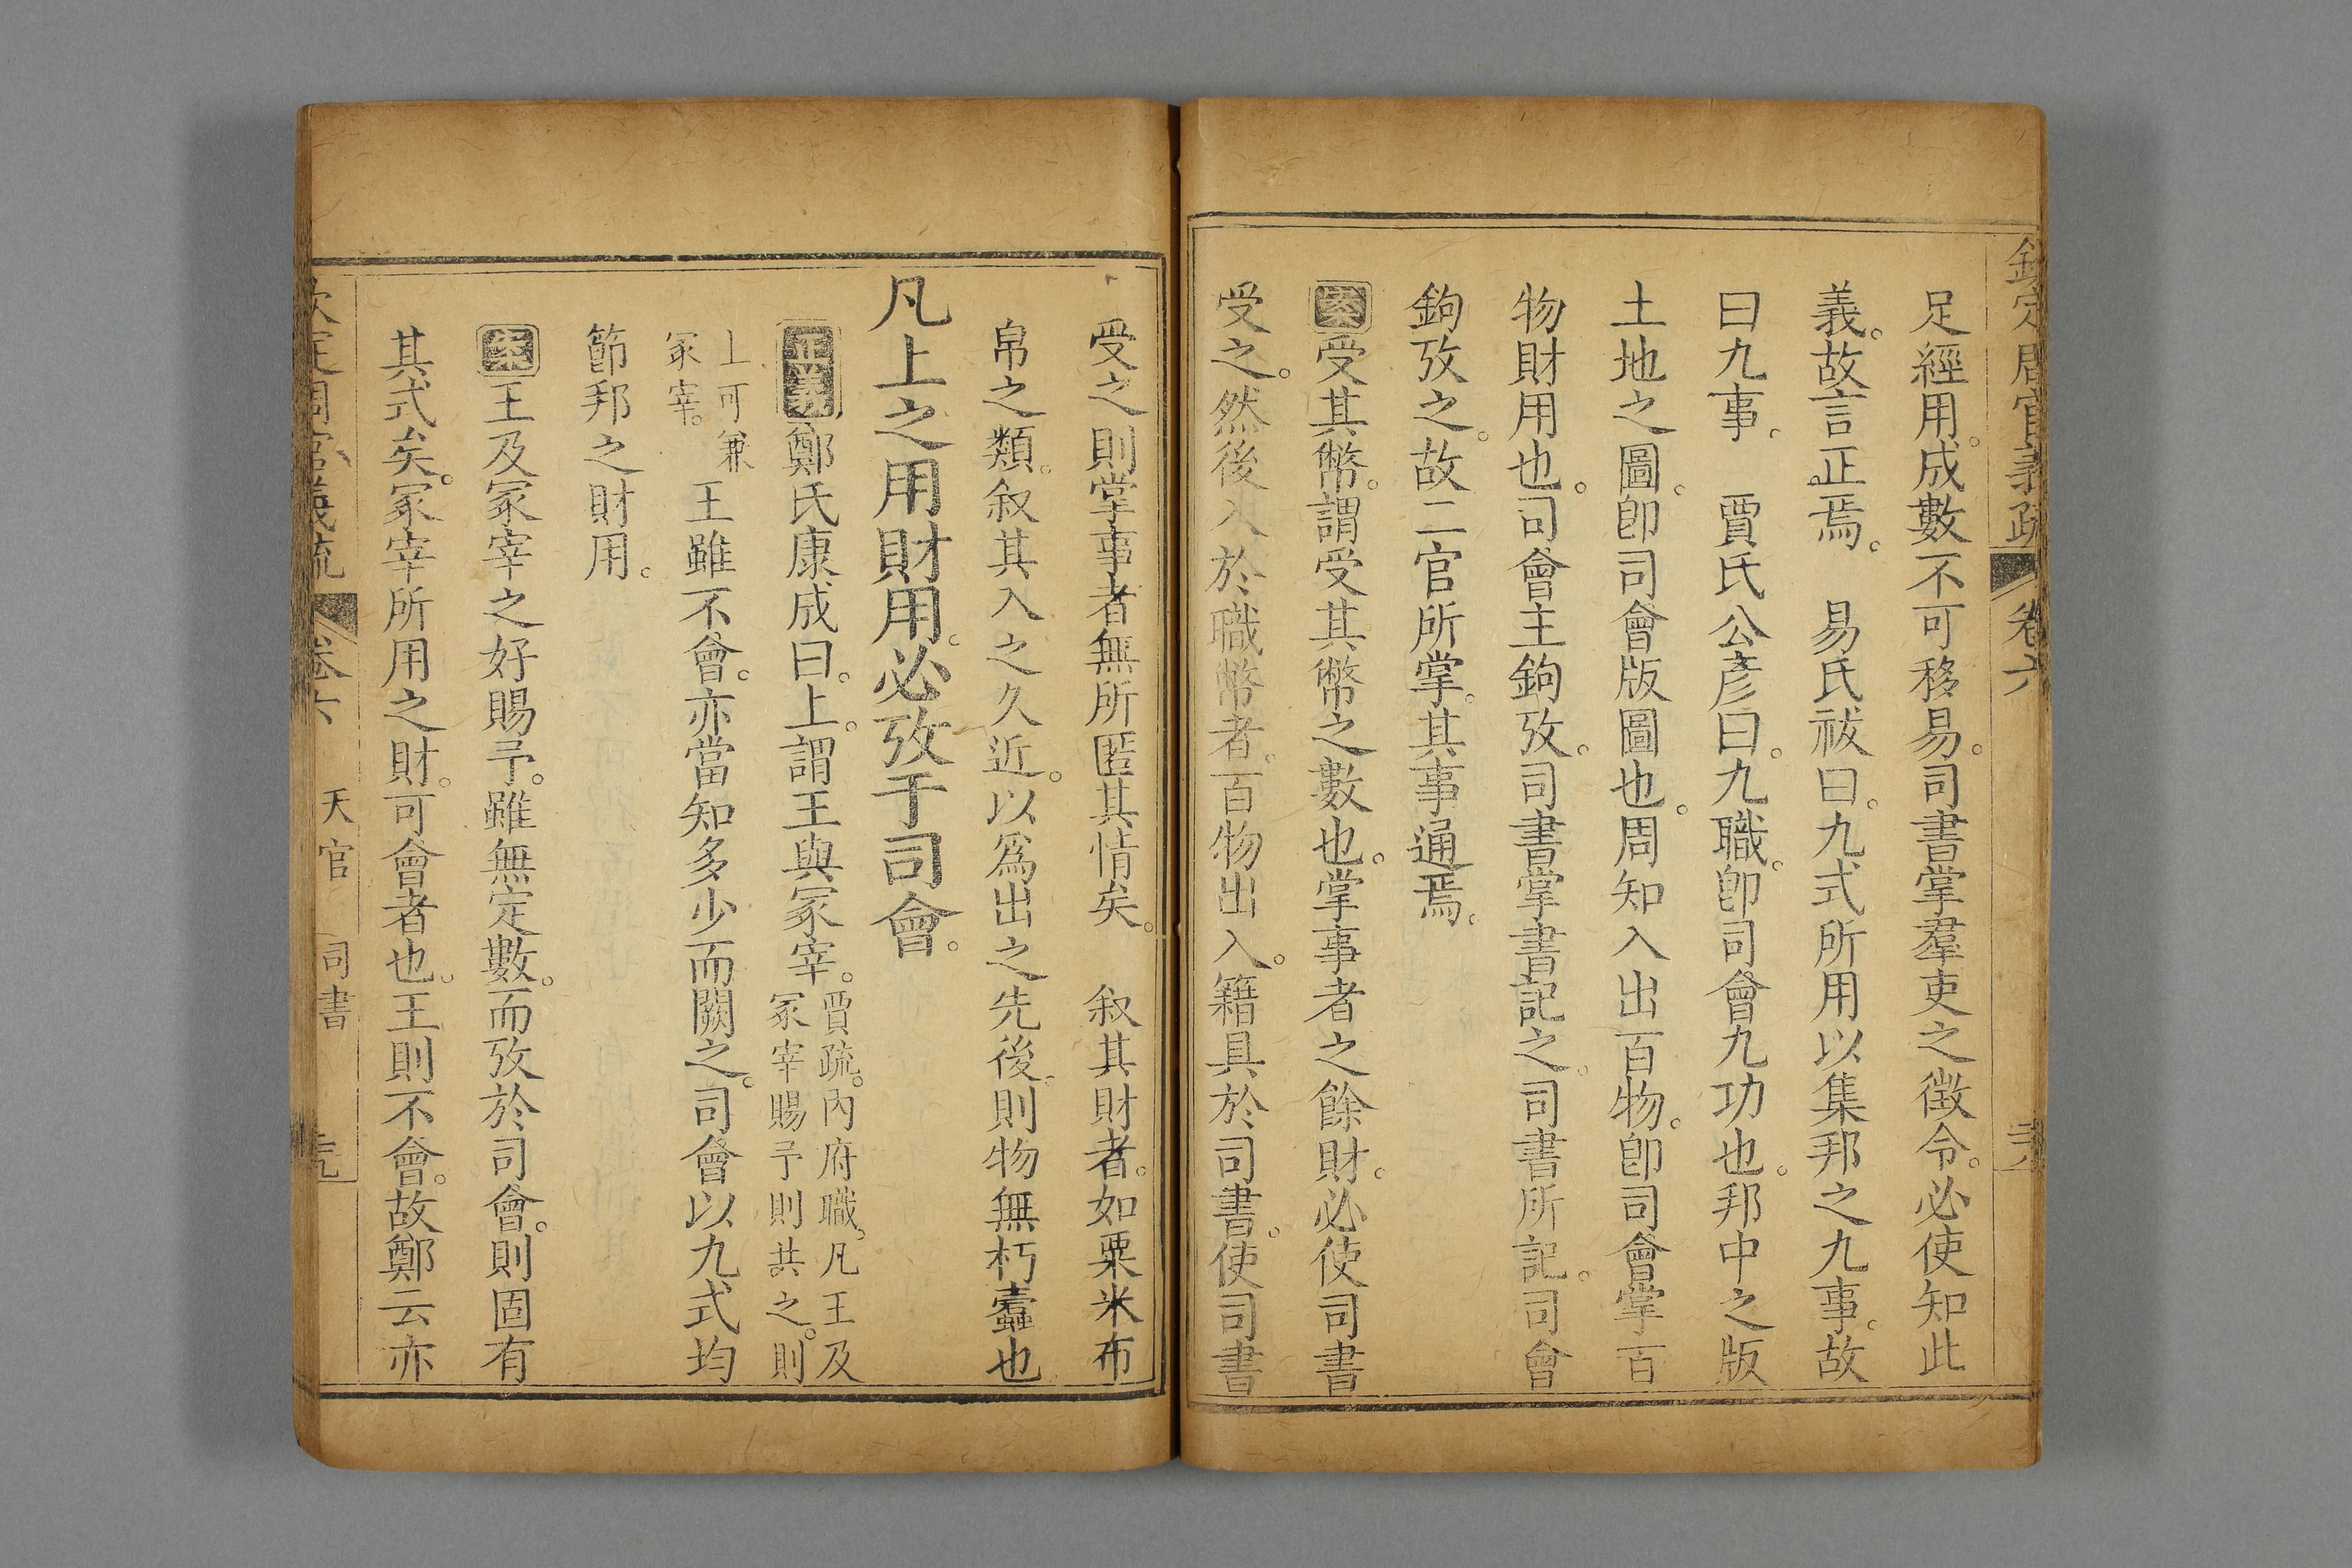 欽定周官義疏 卷六
足經用。成數不可移易。司書掌羣吏之徵令。必使知此
義。故言正焉。 易氏祓曰。九式所用以集邦之九事。故
曰九事。 賈氏公彦曰。九職。卽司會九功也。邦中之版
土地之圖。卽司會版圖也。周知入出百物。卽司會掌百
物財用也。司會主鉤攷。司書掌書記之。司書所記。司會
鉤攷之。故二官所掌。其事通焉。
案受其幣。謂受其幣之數也。掌事者之餘財。必使司書
受之。然後入於職幣者。百物出入。籍具於司書。使司書
受之則掌事者無所匿其情矣。 叙其財者。如粟米布
帛之類。叙其入之久近。以爲出之先後。則物無朽蠹也
凡上之用財用。必攷于司會。
正義鄭氏康成曰。上。謂王與冢宰。賈疏。內府職。凡王及冢宰賜予則共之。則
上可兼冢宰。王雖不會。亦當知多少而闕之。司會以九式均
節邦之財用。
案王及冢宰之好賜予。雖無定數。而攷於司會。則固有
其式矣。冢宰所用之財。可會者也。王則不會。故鄭云亦
欽定周官義疏 卷六 天官 司書